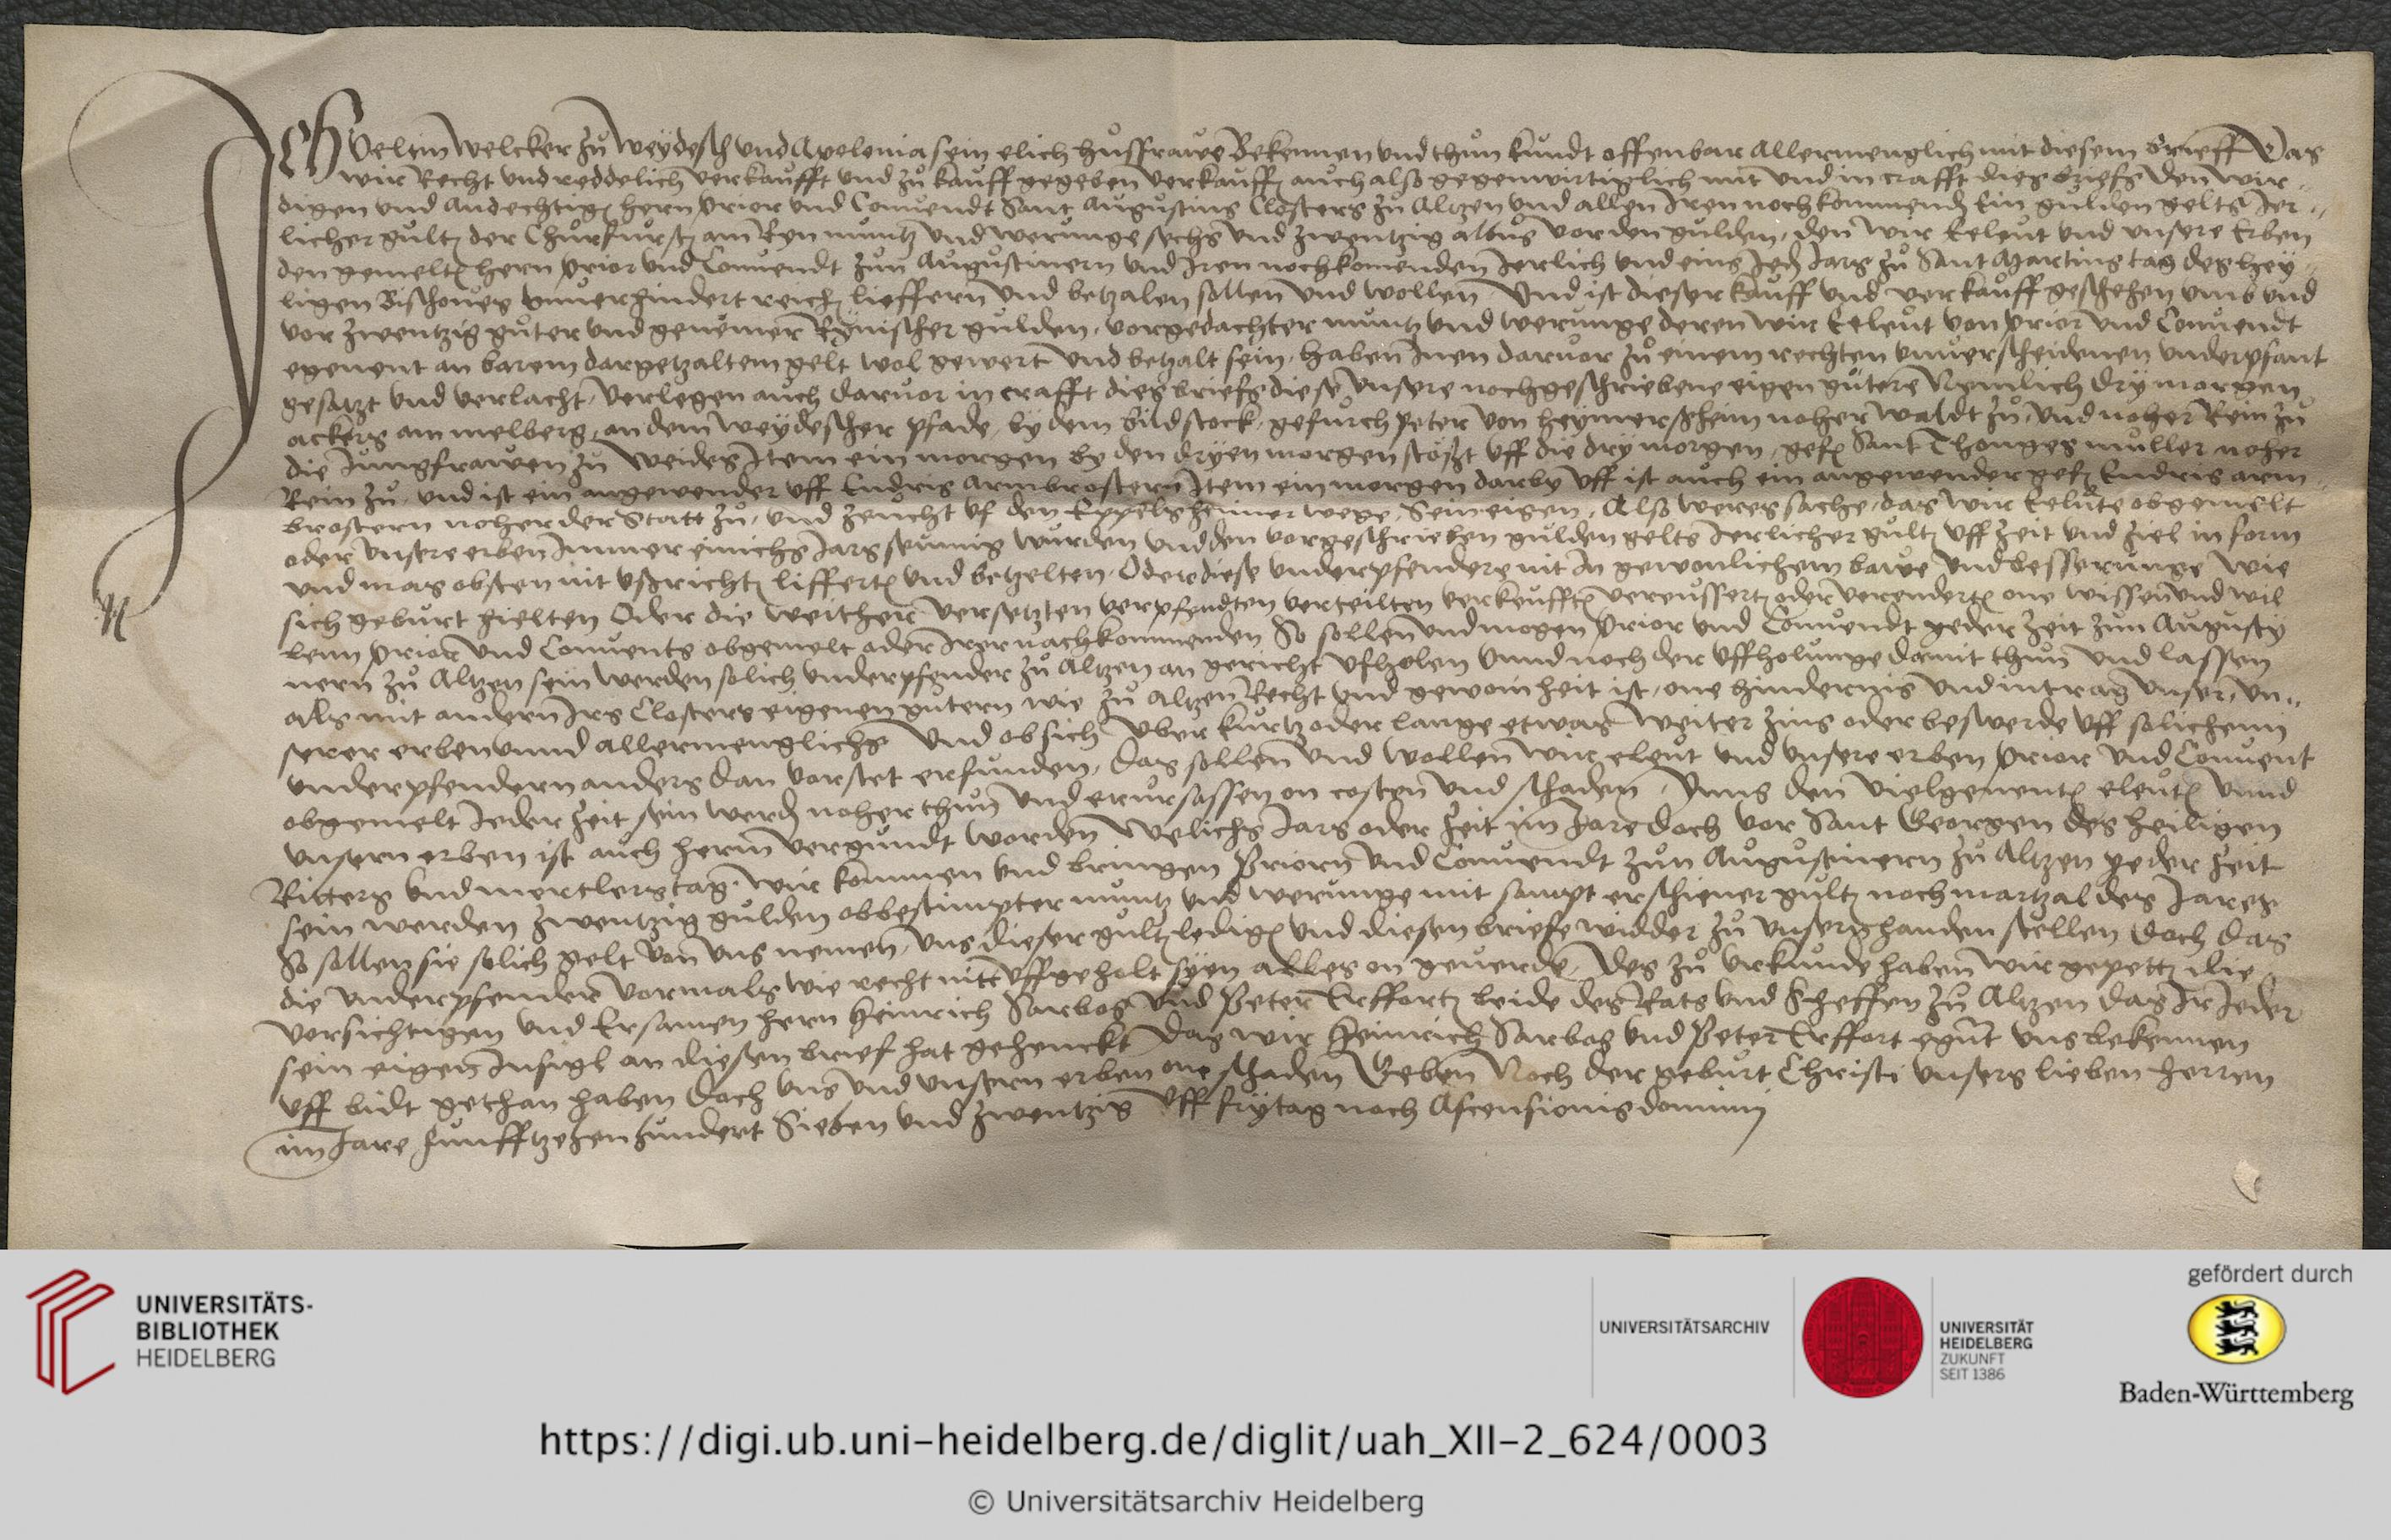 ICh Veltin Welcker zu Weydesh und Apolonia sein elich hussfrawe Bekennen und thun kundt offenbar Allermenglich mit diesem brieff Das
wir Recht und reddelich verkaufft und zu kauff gegeben verkauff auch also gegenwirtiglich mit und in crafft dies briefs den wir-
digen und Andechtigen hern prior und Convendt Sant Augustins Closters zu Altzen und allen Iren nochkommenden Ein gulden gelts Jer-
licher gultz der Churfursten am Ryn muntz und werunge sechs und zwentzig albus vor den gulden, den wir Eeleut und unsere Erben
den gemelten hern prior und Convendt zun Augustinern und Iren nochkomenden Jerlich und eins Jeden Jars zu Sant Martins tag des hey-
ligen Bischoves unverhindert reichen lieffern und betzalen sollen und wollen Und ist dieser kauff und verkauff geschehen umb und
vor zwentzig guter und genemer Rynischer gulden, vorgedachter muntz und werunge deren wir Eeleut von prior und Convendt
egenent an barem dargetzaltem gelt wol gewert und betzalt sein, haben Inen darvor zu einem rechten unverscheidenen underpfant
gesatzt und verlacht, verlegen auch darvor in crafft dies briefs diese unsere nochgeschriebene eigen gutere Nemlich dry morgen
ackers am melberg, an dem weydesher pfade by dem bildstock, gefurch peter von heymersheim noher waldt zu, und noher Rein zu
die Jungfrawen zu Weides Item ein morgen by den dryen morgen stoszt uff die dry morgen, gef. Sant Thonges muller noher
Rein zu und ist ein angewender uff Endris Armbrostern Item ein morgen darby uff ist auch ein angewender gef. Endris arm-
brostern noher der Statt zu, und zeucht uf den Eppelsheimer wege, Sein eigen, Also weres sache, das wir Eelute obgemelt
oder unsere erben Immer einichs Jars seumig wurden und den vorgeschrieben gulden gelts Jerlicher gultz uff zeit und ziel in form
und mas obsten nit uszrichten lifferten und betzelten, Oder diese underpfendere nit In gewonlichem bawe und besserunge wie
sich geburt hielten Oder die weither versetzten verpfendten verteilten verkeufften vereusserten oder verenderten one wissen und wil
lenn prior und Convents obgemelt oder Irer nachkommenden So sollen und mogen prior und Convendt yeder zeit zun Augusty
nern zu Altzen sein werden solich underpfender zu Altzen an gericht ufholen unnd noch der uffholunge damit thun und lassen
als mit andern Irs Closters eigenen gutern wie zu Altzen Recht und gewonheit ist, one hindernis und intrag unser, un-
serer erben unnd allermenglichs Und ob sich uber kurtz oder lange etwas weiter zins oder beswerde uff solichenn
underpfendern anders dan vorstet erfunden, das sollen und wollen wir eleut und unsere erben prior und Convent
obgemelt Jeder zeit sein werden noher thun und ervrsassen on costen und schaden, Unns den vielgenenten eleuten unnd
unsern erben ist auch herin vergundt worden Welichs Jars oder zeit im Jare doch vor Sant Georgen des heiligen
Ritters und mertlers tag, wir kommen und bringen Priorn und Convendt zun Augustinern zu Altzen yeder zeit
sein werden zwentzig gulden obbestimpter muntz und werunge mit sampt erschiener gultz noch martzal des Jares
So sollen sie solich gelt von uns nemen, uns dieser gultz ledigen und diesen briefe widder zu unsern handen stellen doch das
die underpfender vormals wie recht nitt uffgeholt syen alles on geverde, Des zu urkunde haben wir gepetten die
vorsichtigen und Ersamen hern Heinrich Sarbos und Peter Erffort beide des Rats und Scheffen zu Altzen das Ir Jeder
sein eigen Insigl an diesen brief hat gehenckt Das wir Heinrich Sarbos und Peter Erffort egnt uns bekennen
uff bidt gethan haben doch uns und unsern erben one schaden Geben Noch der geburt Christi unsers lieben herren
im Jare funfftzehenhundert Sieben und zwentzig Uff frytag noch Ascensionis domini
UNIVERSITÄTS-
BIBLIOTHEK
HEIDELBERG
UNIVERSITÄTSARCHIV
UNIVERSITÄT
HEIDELBERG
ZUKUNFT
SEIT 1386
gefördert durch
Baden-Württemberg
https://digi.ub.uni-heidelberg.de/diglit/uah_XII-2_624/0003
© Universitätsarchiv Heidelberg